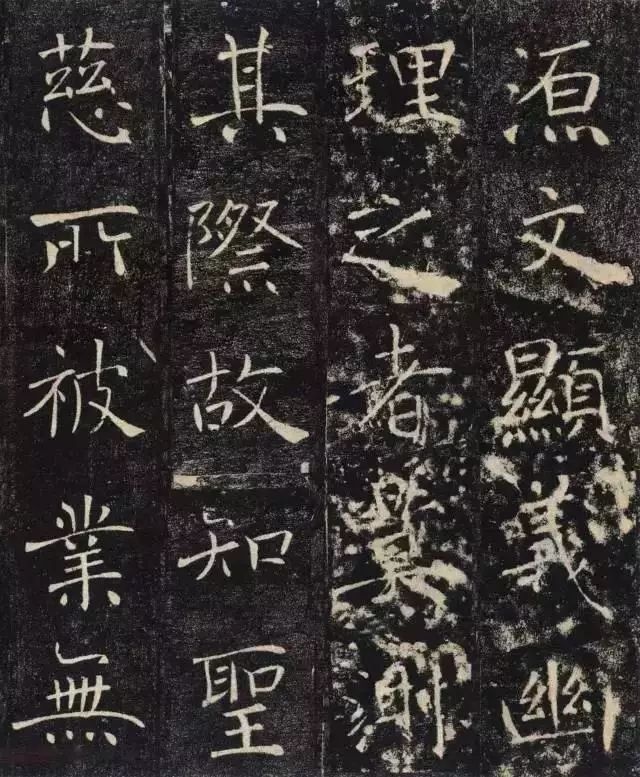 源文顯義幽
理之者莫測
其際故知聖
慈所被業無